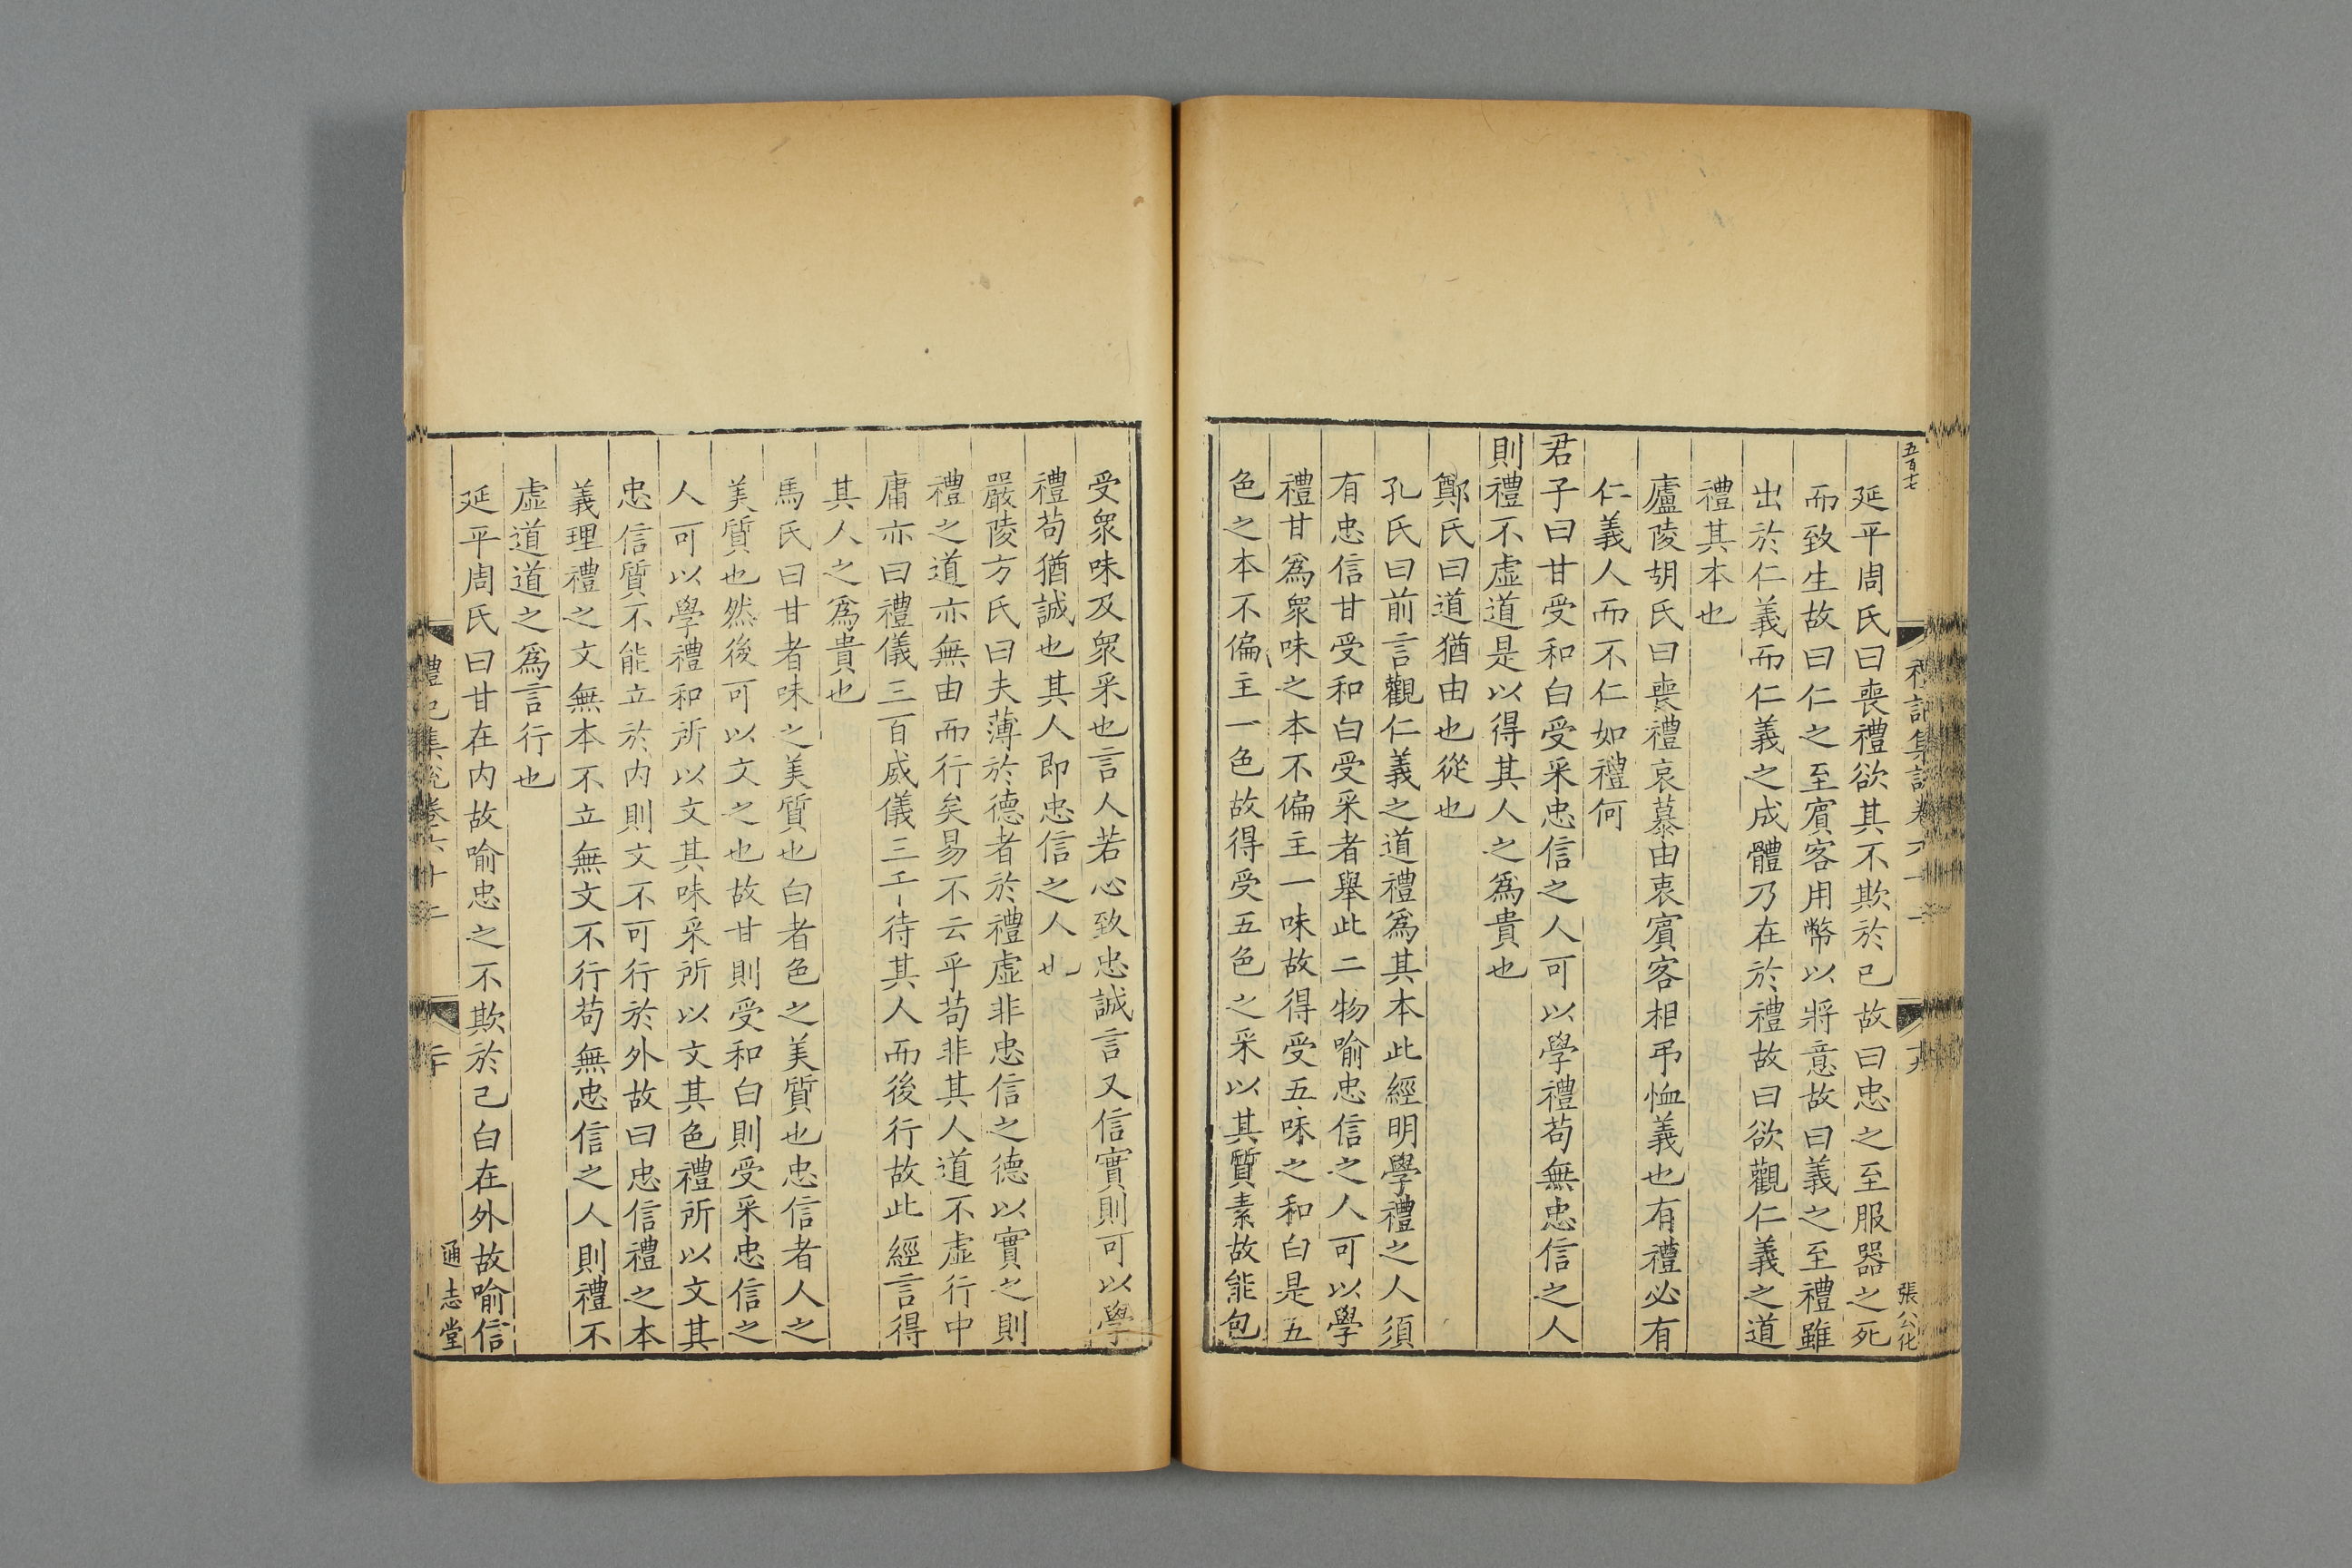 五百七
張公化
延平周氏曰喪禮欲其不欺於己故曰忠之至服器之死
而致生故曰仁之至賔客用幣以將意故曰義之至禮雖
出於仁義而仁義之成體乃在於禮故曰欲觀仁義之道
禮其本也
廬陵胡氏曰喪禮哀慕由衷賔客相弔恤義也有禮必有
仁義人而不仁如禮何
君子曰甘受和白受采忠信之人可以學禮苟無忠信之人
則禮不虛道是以得其人之爲貴也
鄭氏曰道猶由也從也
孔氏曰前言觀仁義之道禮爲其本此經明學禮之人須
有忠信甘受和白受采者舉此二物喻忠信之人可以學
禮甘爲衆味之本不偏主一味故得受五味之和白是五
色之本不偏主一色故得受五色之采以其質素故能包
受衆味及衆采也言人若心致忠誠言又信實則可以學
禮苟猶誠也其人即忠信之人也
嚴陵方氏曰夫薄於德者於禮虛非忠信之德以實之則
禮之道亦無由而行矣易不云乎苟非其人道不虛行中
庸亦曰禮儀三百威儀三千待其人而後行故此經言得
其人之爲貴也
馬氏曰甘者味之美質也白者色之美質也忠信者人之
美質也然後可以文之也故甘則受和白則受采忠信之
人可以學禮和所以文其味采所以文其色禮所以文其
忠信質不能立於内則文不可行於外故曰忠信禮之本
義理禮之文無本不立無文不行苟無忠信之人則禮不
虛道道之爲言行也
延平周氏曰甘在内故喻忠之不欺於己白在外故喻信
禮記集說卷六十二
二十
通志堂